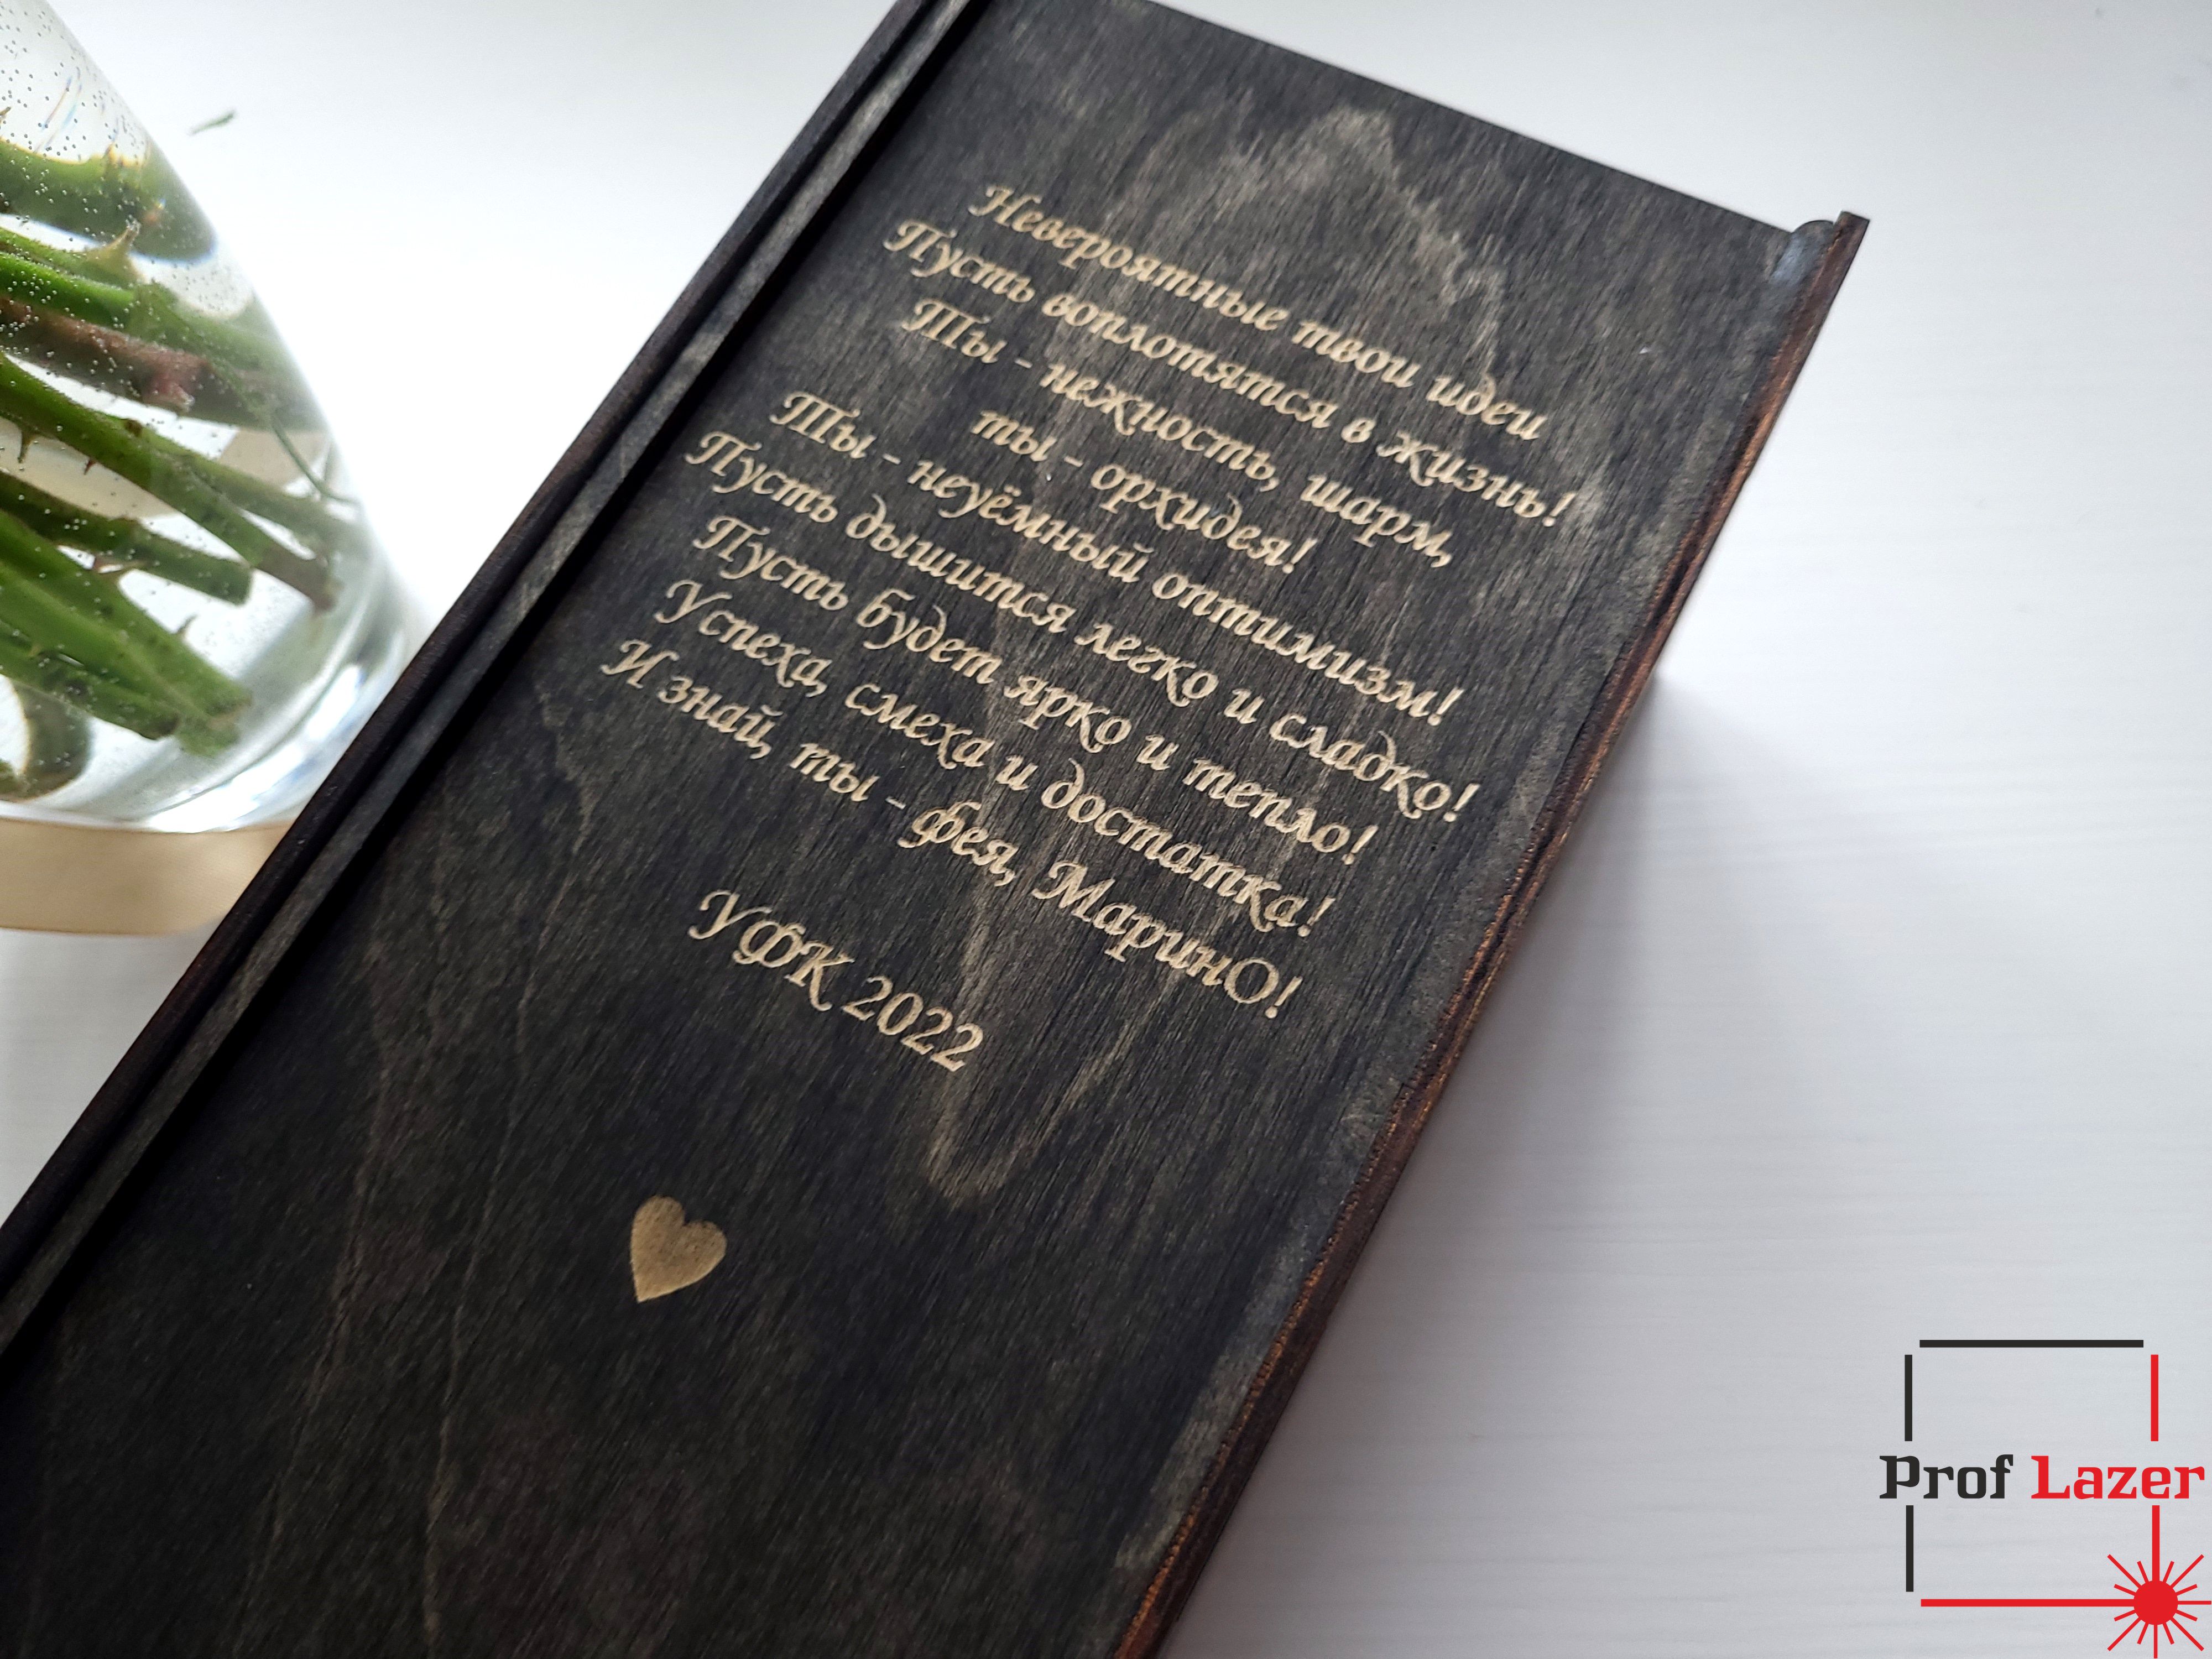 Невероятные твои идеи
Пусть воплотятся в жизнь!
Ты - нежность, шарм,
ты - орхидея!
Ты - неуёмный оптимизм!
Пусть дышится легко и сладко!
Пусть будет ярко и тепло!
Успеха, смеха и достатка!
И знай, ты - фея, МаринО!
УФК 2022
Prof Lazer